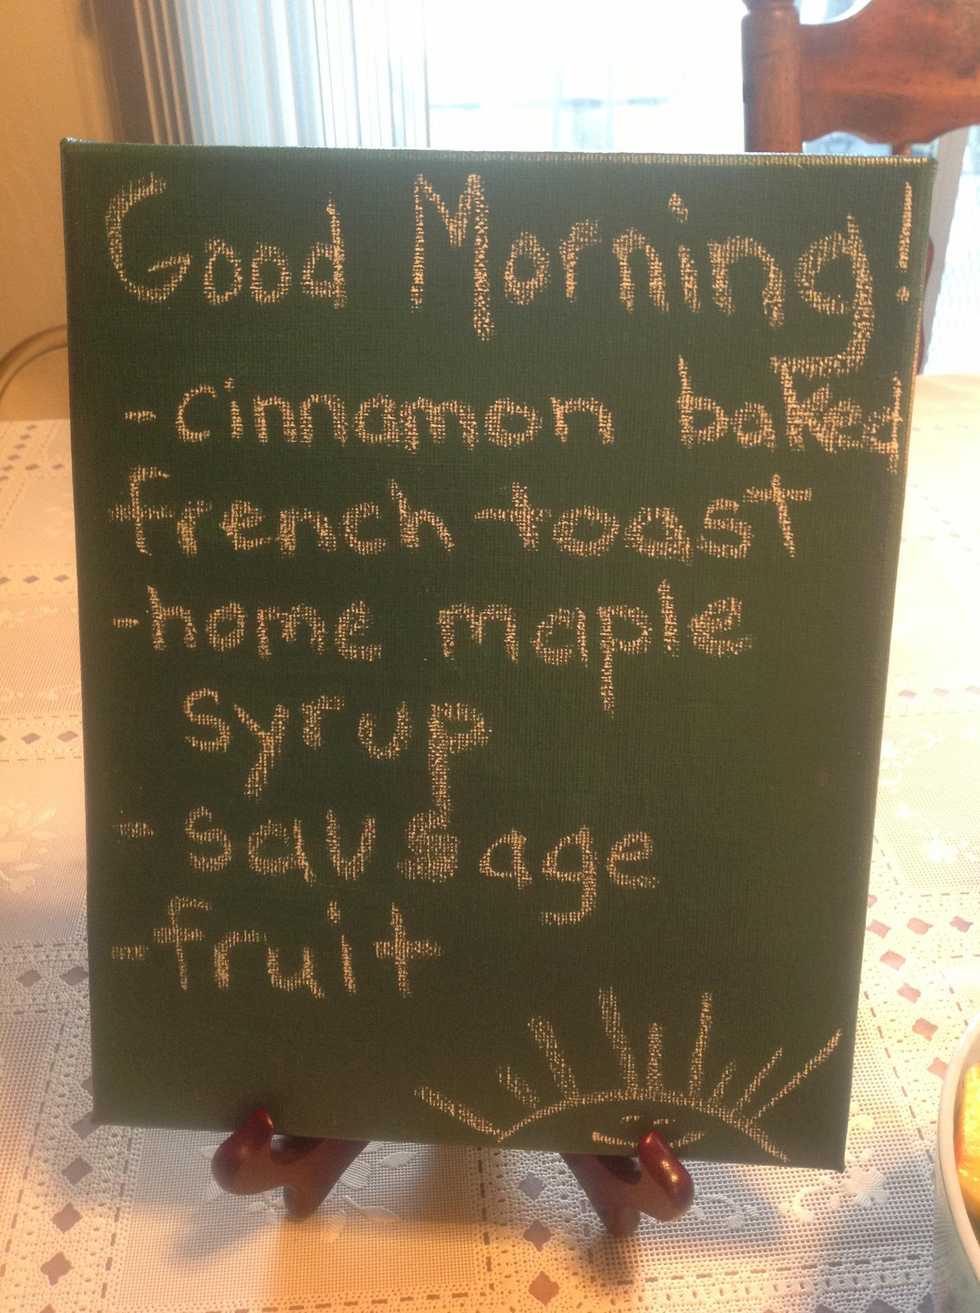 Good Morning!
- cinnamon baked
french toast
- home maple
syrup
- sausage
- fruit